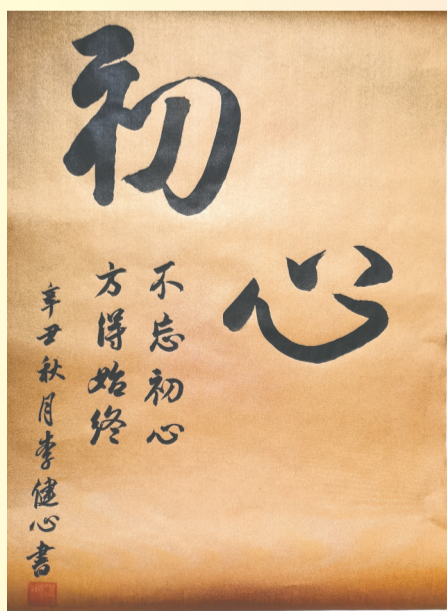 初心
不忘初心
方得始终
辛丑秋月李健心書